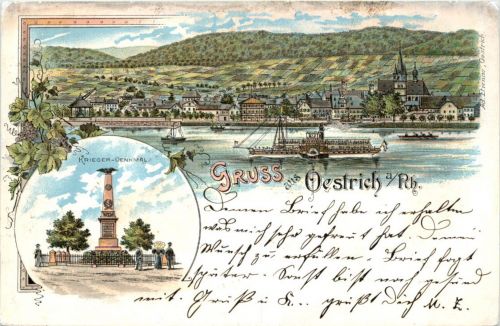 KRIEGER-DENKMAL.
GRUSS aus Oestrich a/Rh.
Deinen Brief habe ich erhalten
was mich sehr gefreut hat Deinen
Wunsch zu erfüllen. Brief folgt
später. Sonst bist noch gesund
mit. Gruß u K.. grüßt Dich M. Z.